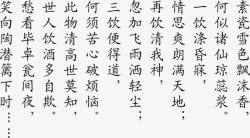 素瓷雪色飘沫香，
何似诸仙琼蕊浆。
一饮涤昏寐，
情思爽朗满天地；
再饮清我神，
忽如飞雨洒轻尘；
三饮便得道，
何须苦心破烦恼。
此物清高世莫知，
世人饮酒多自欺。
愁看毕卓瓮间夜，
笑向陶潜篱下时……